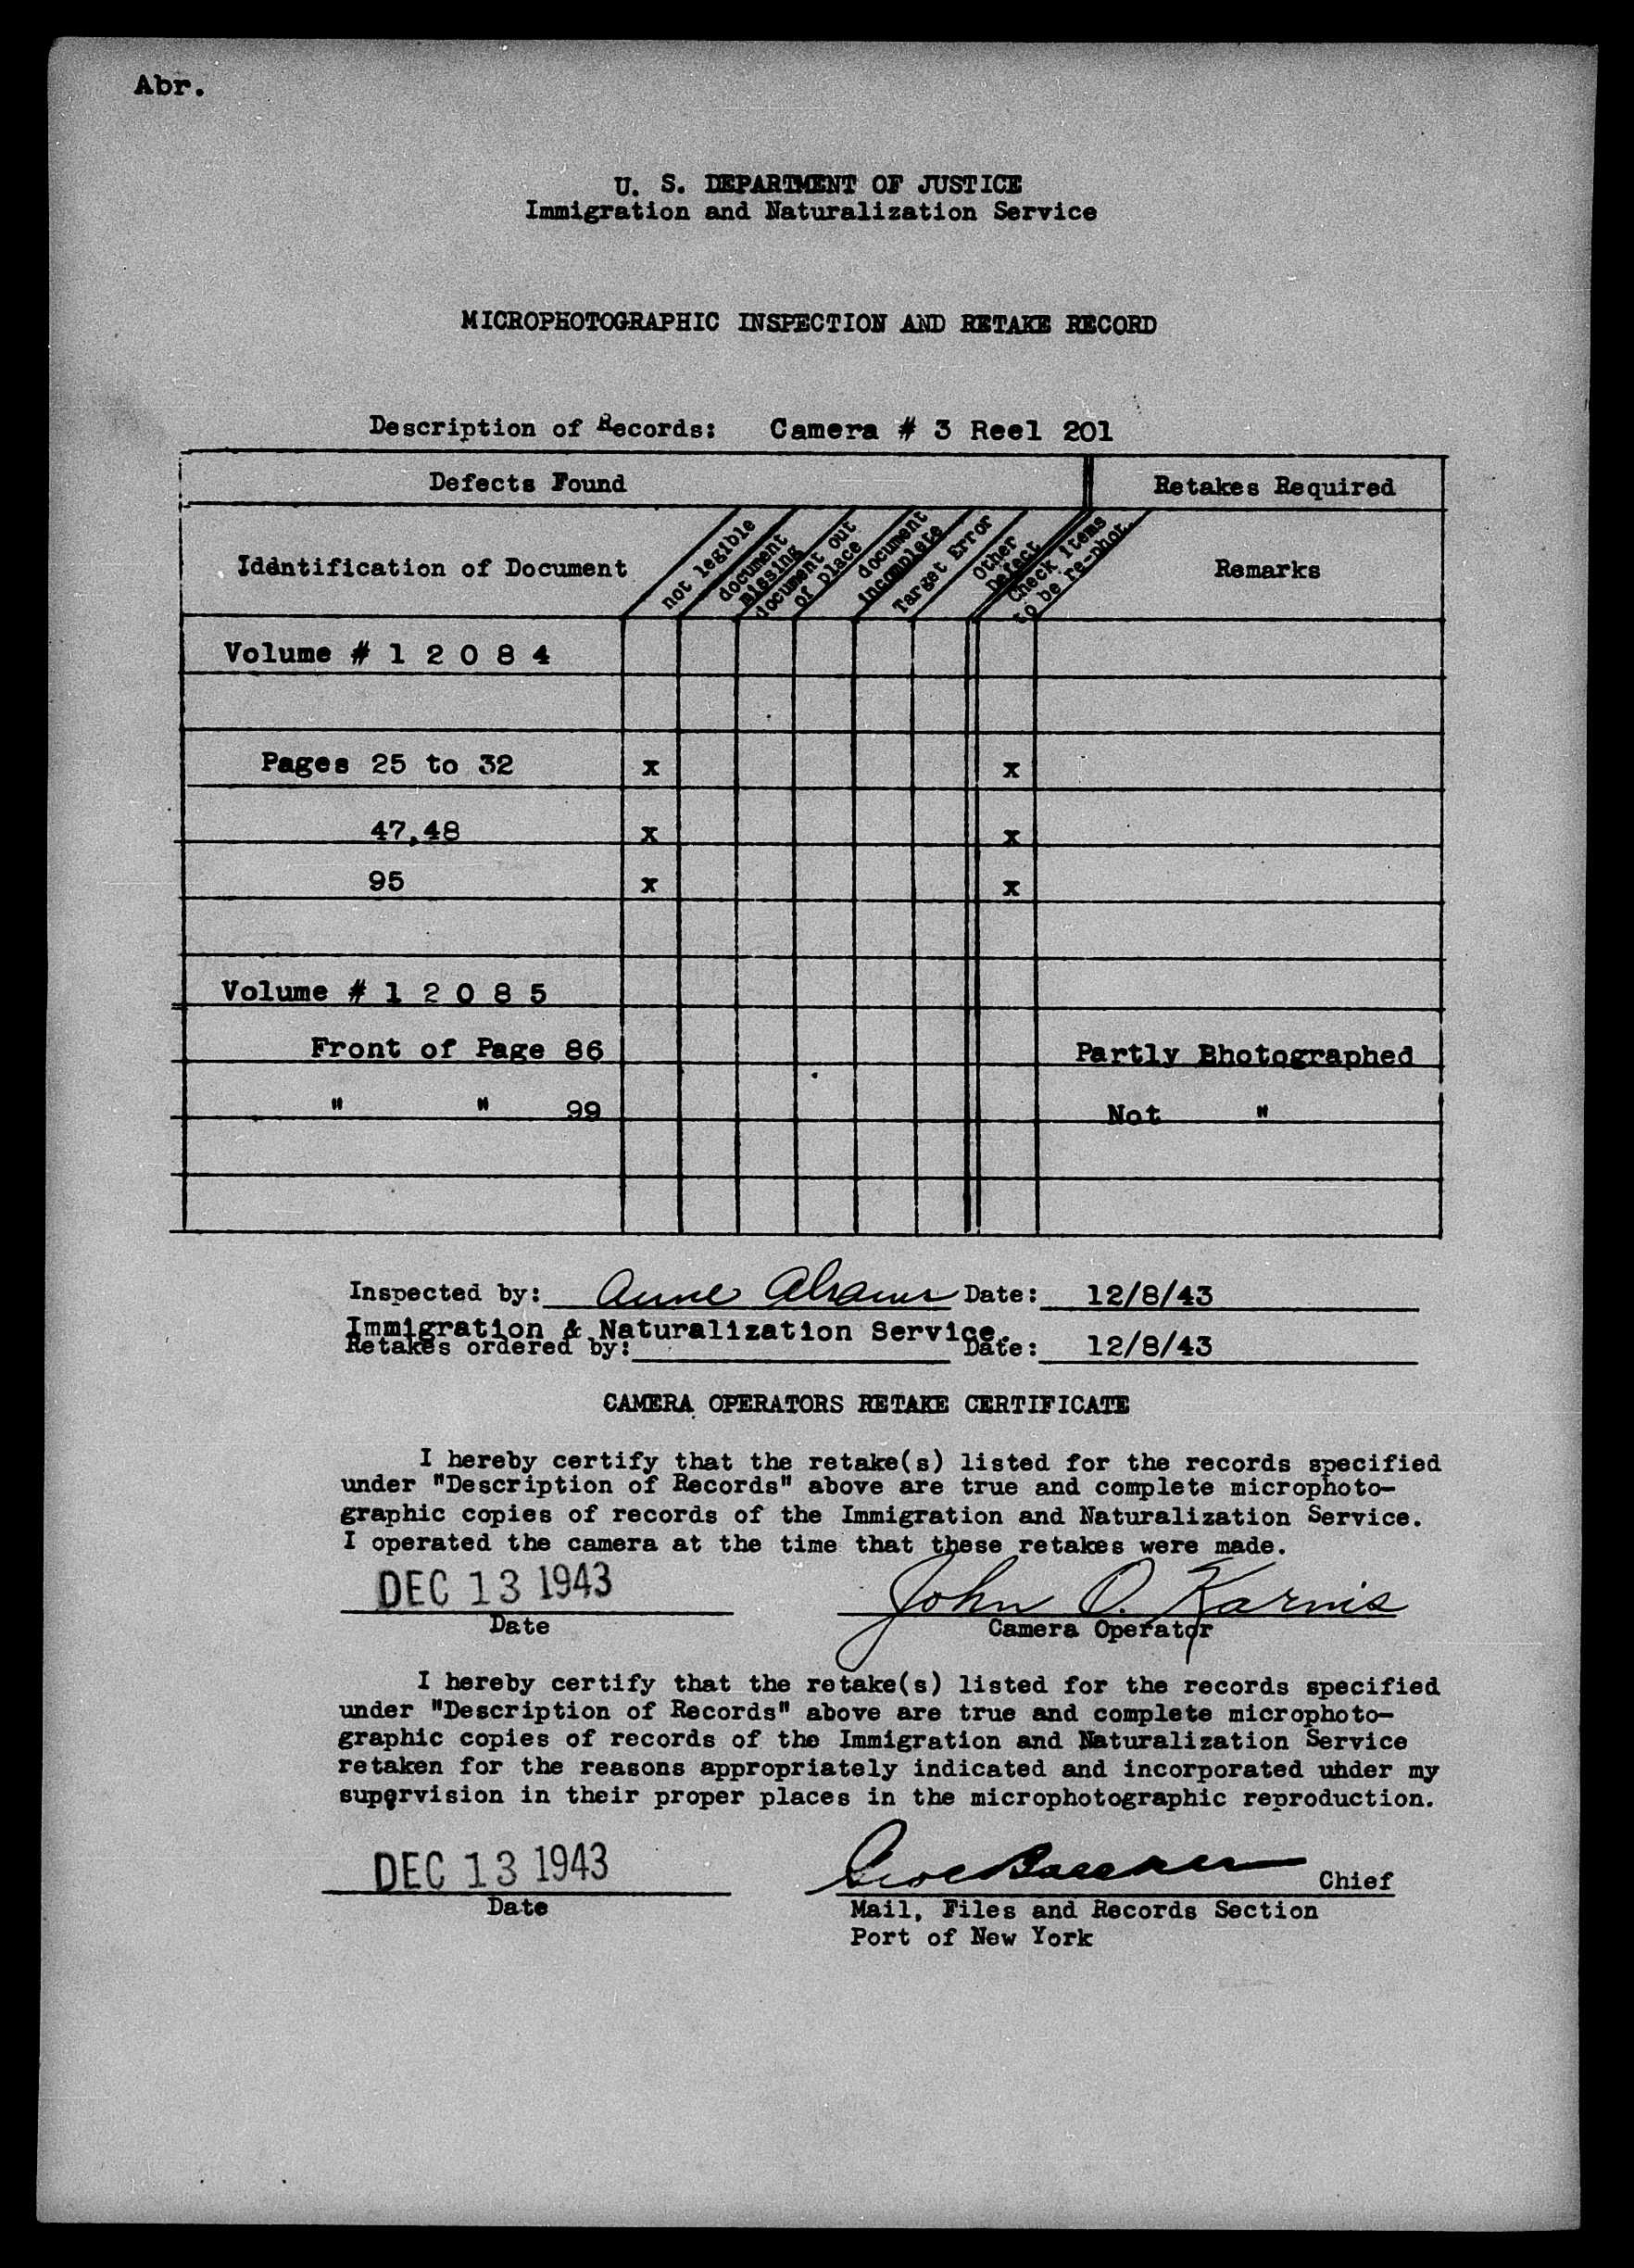 Abr.
U. S. DEPARTMENT OF JUSTICE
Immigration and Naturalization Service
MICROPHOTOGRAPHIC INSPECTION AND RETAKE RECORD
Description of Records: Camera # 3 Reel 201
Defects Found Retakes Required
Idantification of Document
not legible
document missing
document out of place
document incomplete
Target Error
Other Defect
Check items to be re-phot.
Remarks
Volume # 1 2 0 8 4
Pages 25 to 32 x x
47,48 x x
95 x x
Volume # 1 2 0 8 5
Front of Page 86 Partly Bhotographed
" " 99 Not "
Inspected by: Anne Abrams Date: 12/8/43
Immigration & Naturalization Service.
Retakes ordered by: Date: 12/8/43
CAMERA OPERATORS RETAKE CERTIFICATE
I hereby certify that the retake(s) listed for the records specified
under "Description of Records" above are true and complete microphoto-
graphic copies of records of the Immigration and Naturalization Service.
I operated the camera at the time that these retakes were made.
DEC 13 1943 John O. Karnis
Date Camera Operator
I hereby certify that the retake(s) listed for the records specified
under "Description of Records" above are true and complete microphoto-
graphic copies of records of the Immigration and Naturalization Service
retaken for the reasons appropriately indicated and incorporated under my
supervision in their proper places in the microphotographic reproduction.
DEC 13 1943 Chief
Date Mail, Files and Records Section
Port of New York